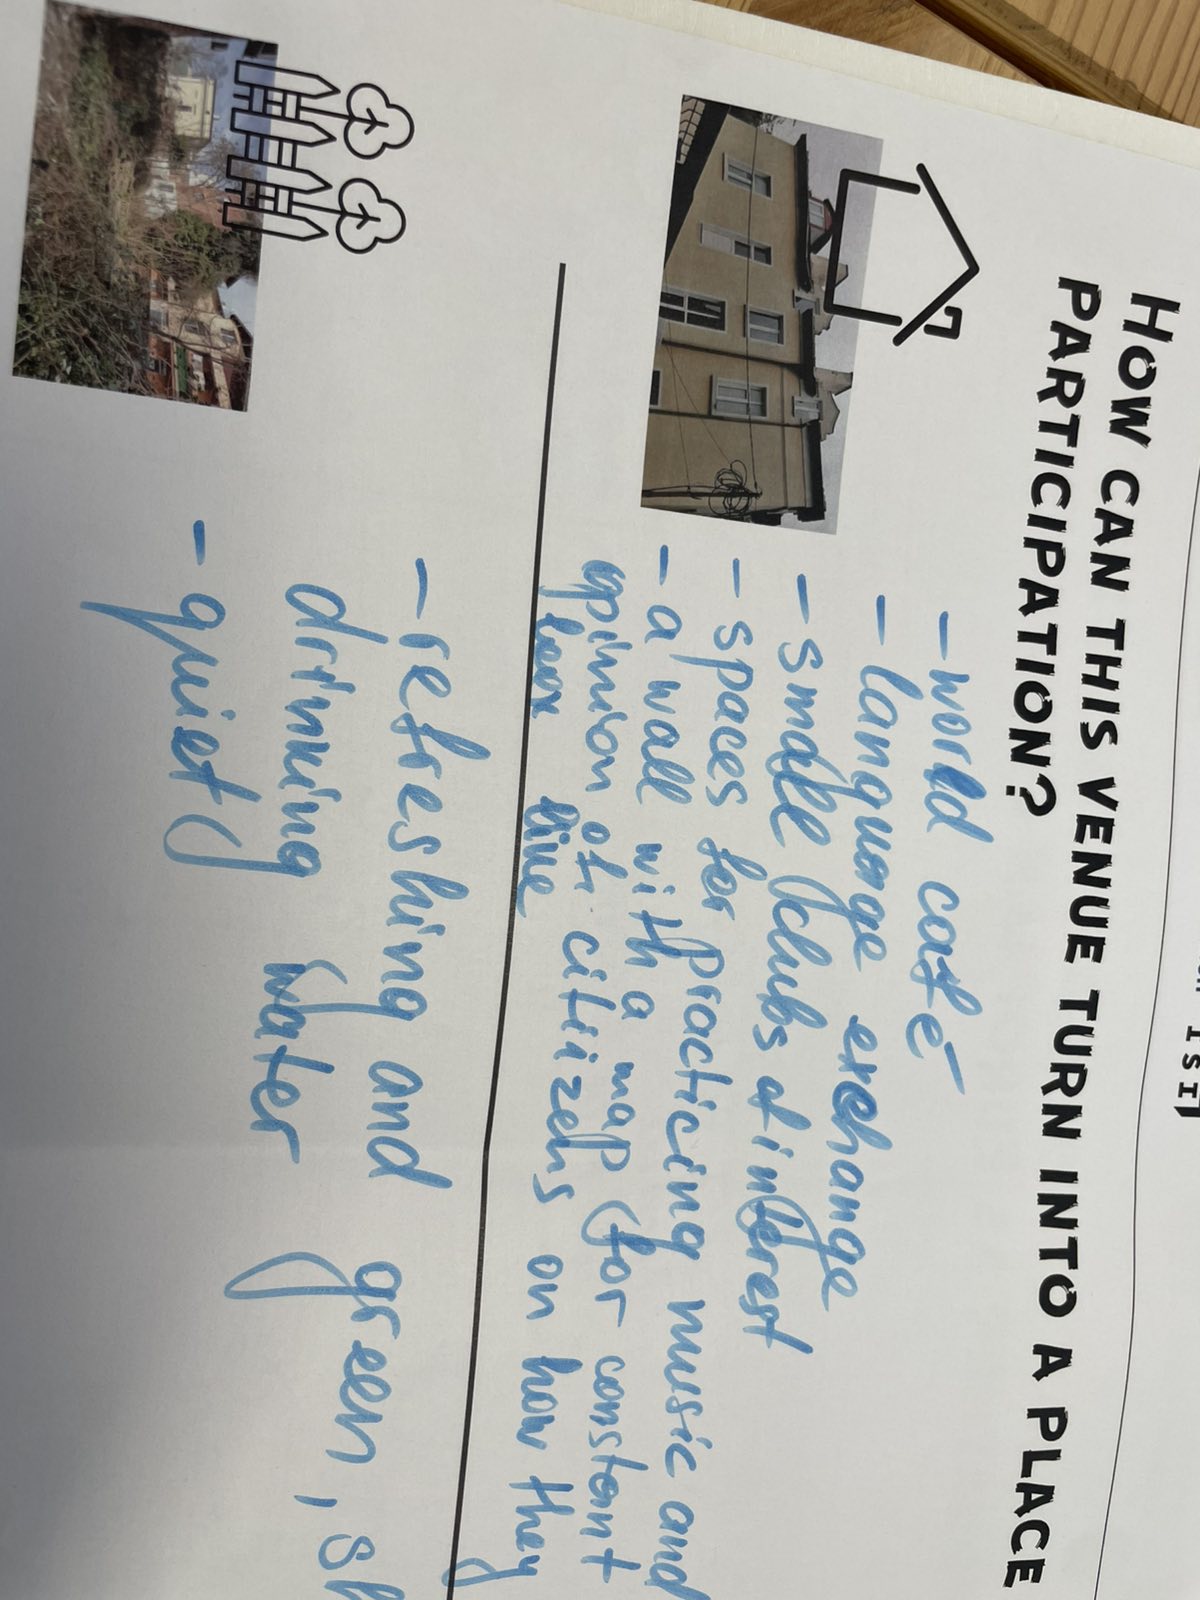 HOW CAN THIS VENUE TURN INTO A PLACE
PARTICIPATION?
- world café
- language exchange
- small clubs of interest
- spaces for practicing music and
- a wall with a map (for constant
opinion of citizens on how they
- refreshing and green, sh
drinking water
- quiet